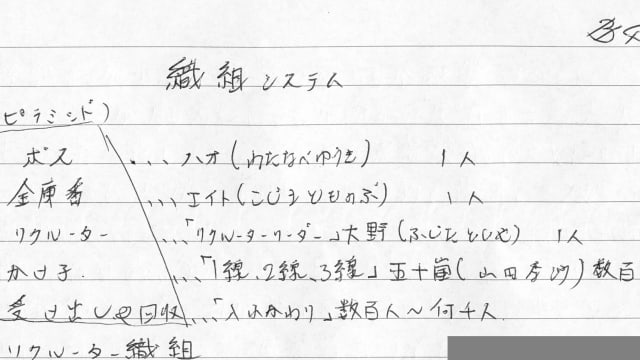 織組システム
ピラミンド)
ボス ... ハオ(わたなべゆうき) 1人
金庫番 ... エイト(こじまとものぶ) 1人
リクルーター ...「リクルーターリーダー」大野(ふじたとしや) 1人
かけ子. ...「1線、2線、3線」五十嵐(山田李沙)数百
受け出しや回収 ...「入れかわり」数百人～何千人
リクルーター織組